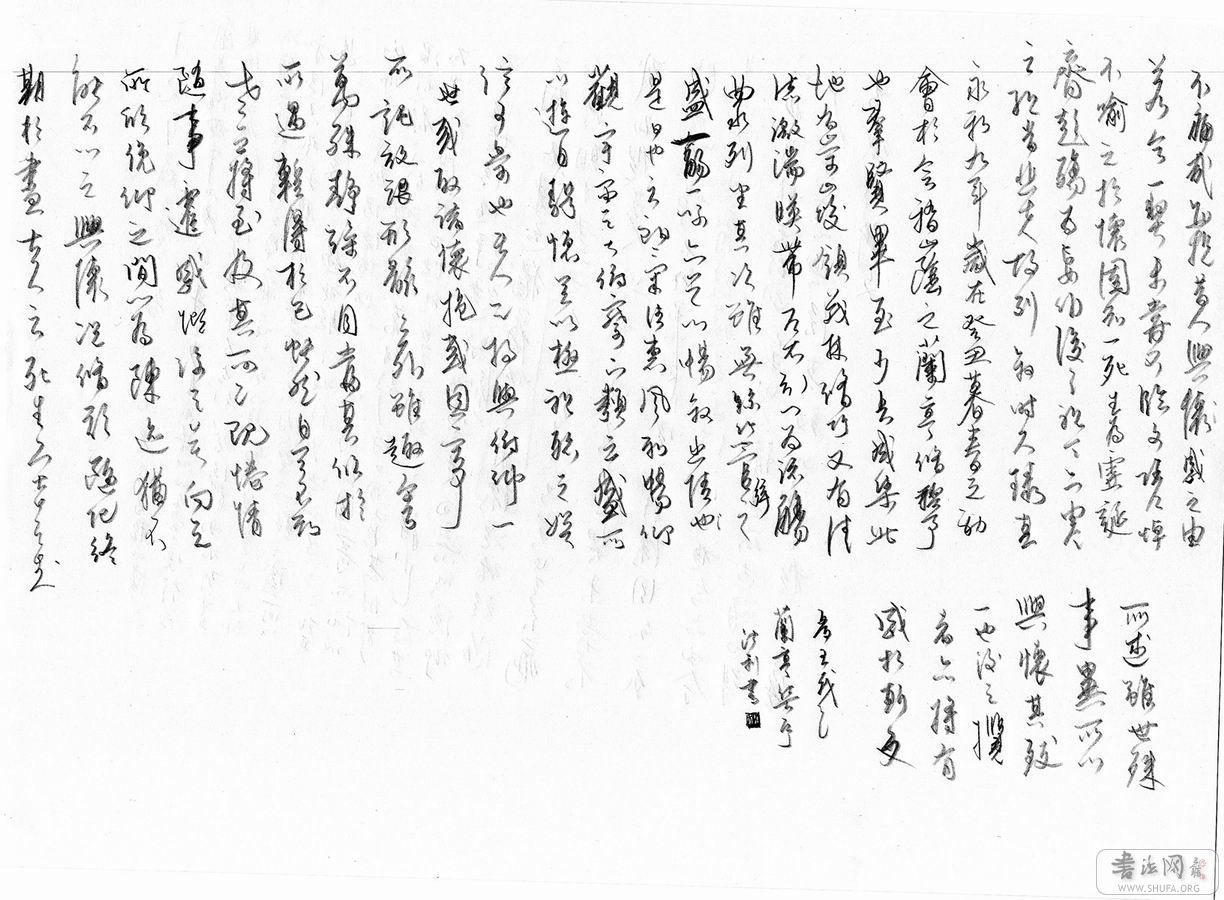 不痛哉每攬昔人興懷感之由
若合一契未嘗不臨文嗟悼
不喻之於懷固知一死生為虛誕
齊彭殤為妄作後之視今亦由今
之視昔悲夫故列敘時人錄其
永和九年歲在癸丑暮春之初
會於會稽山陰之蘭亭修禊事
也羣賢畢至少長咸集此
地有崇山峻領茂林修竹又有清
流激湍暎帶左右引以為流觴
曲水列坐其次雖無絲竹管絃之
盛一觴一詠亦足以暢敘幽情也
是日也天朗氣清惠風和暢仰
觀宇宙之大俯察品類之盛所
以遊目騁懷足以極視聽之娛
信可樂也夫人之相與俯仰一
世或取諸懷抱或因寄
所託放浪形骸之外雖趣舍
萬殊靜躁不同當其欣於
所遇暫得於己快然自足不知
老之將至及其所之既惓情
隨事遷感慨係之矣向之
所欣俛仰之間以為陳迹猶不
能不以之興懷況脩短隨化終
期於盡古人云死生亦大矣豈
所述雖世殊
事異所以
興懷其致
一也後之攬
者亦將有
感於斯文
晉王羲之
蘭亭集序
書法网
WWW.SHUFA.ORG